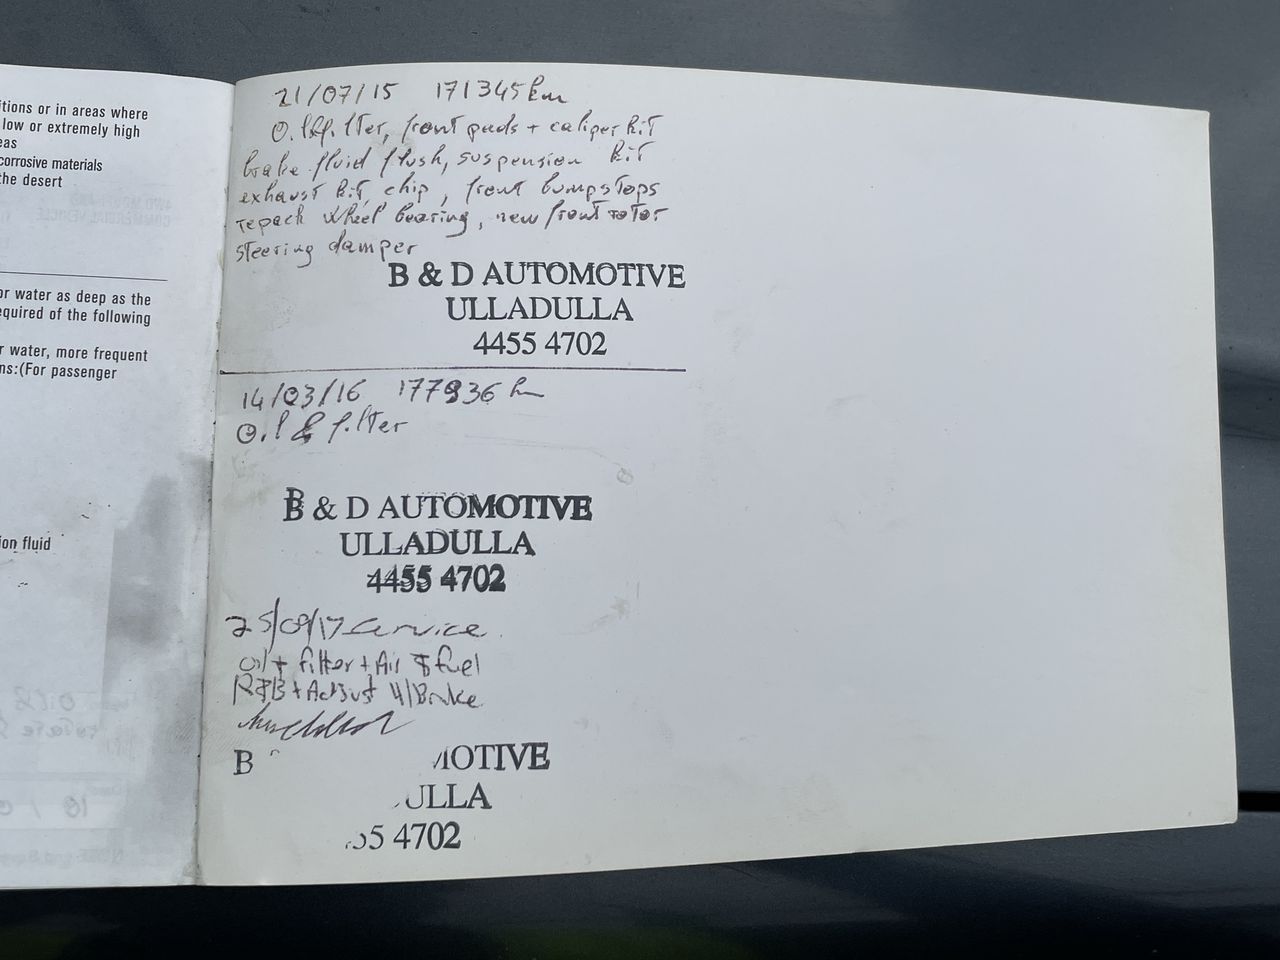 itions or in areas where
low or extremely high
eas
corrosive materials
the desert
or water as deep as the
equired of the following
r water, more frequent
ns:(For passenger
ion fluid
21/07/15 171345km
Oil & filter, front pads + caliper kit
brake fluid flush, suspension kit
exhaust kit, chip, front bumpstops
repack wheel bearing, new front rotor
steering damper
B & D AUTOMOTIVE
ULLADULLA
4455 4702
14/03/16 177936 km
Oil & filter
B & D AUTOMOTIVE
ULLADULLA
4455 4702
25/09/17 Service
oil + filter + Air & fuel
R&B + Adjust H/Brake
B MOTIVE
ULLA
55 4702